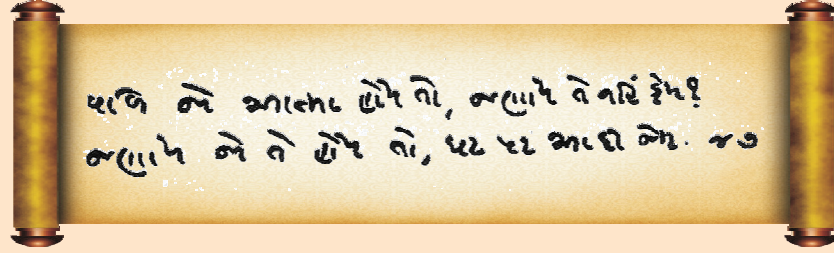 વળી જો આત્મા હોય તો, જણાય તે નહિં કેમ?
જણાય જો તે હોય તો, ઘટ પટ આદી જેમ. ૪૭